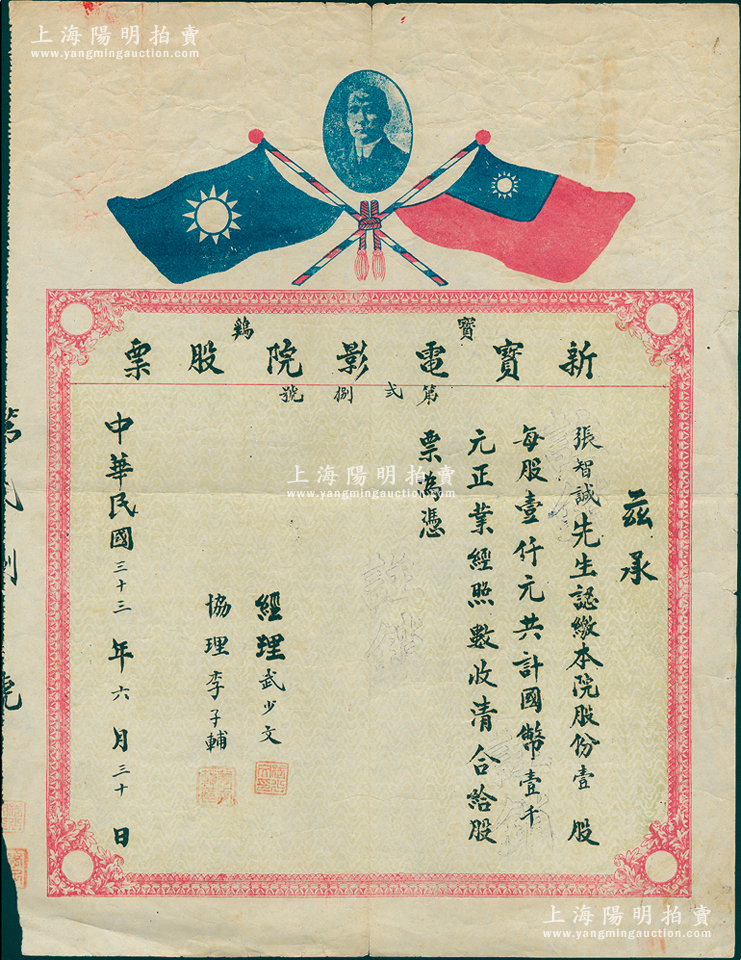 上海陽明拍賣
www.yangmingauction.com
寶鷄
新寶電影院股票
第弍捌號
茲承
張智誠先生認繳本院股份壹股
每股壹仟元共計國幣壹千
元正業經照數收清合給股
票為憑
經理武少文
協理李子輔
中華民國三十三年六月三十日
上海陽明拍賣
www.yangmingauction.com
上海陽明拍賣
www.yangmingauction.com